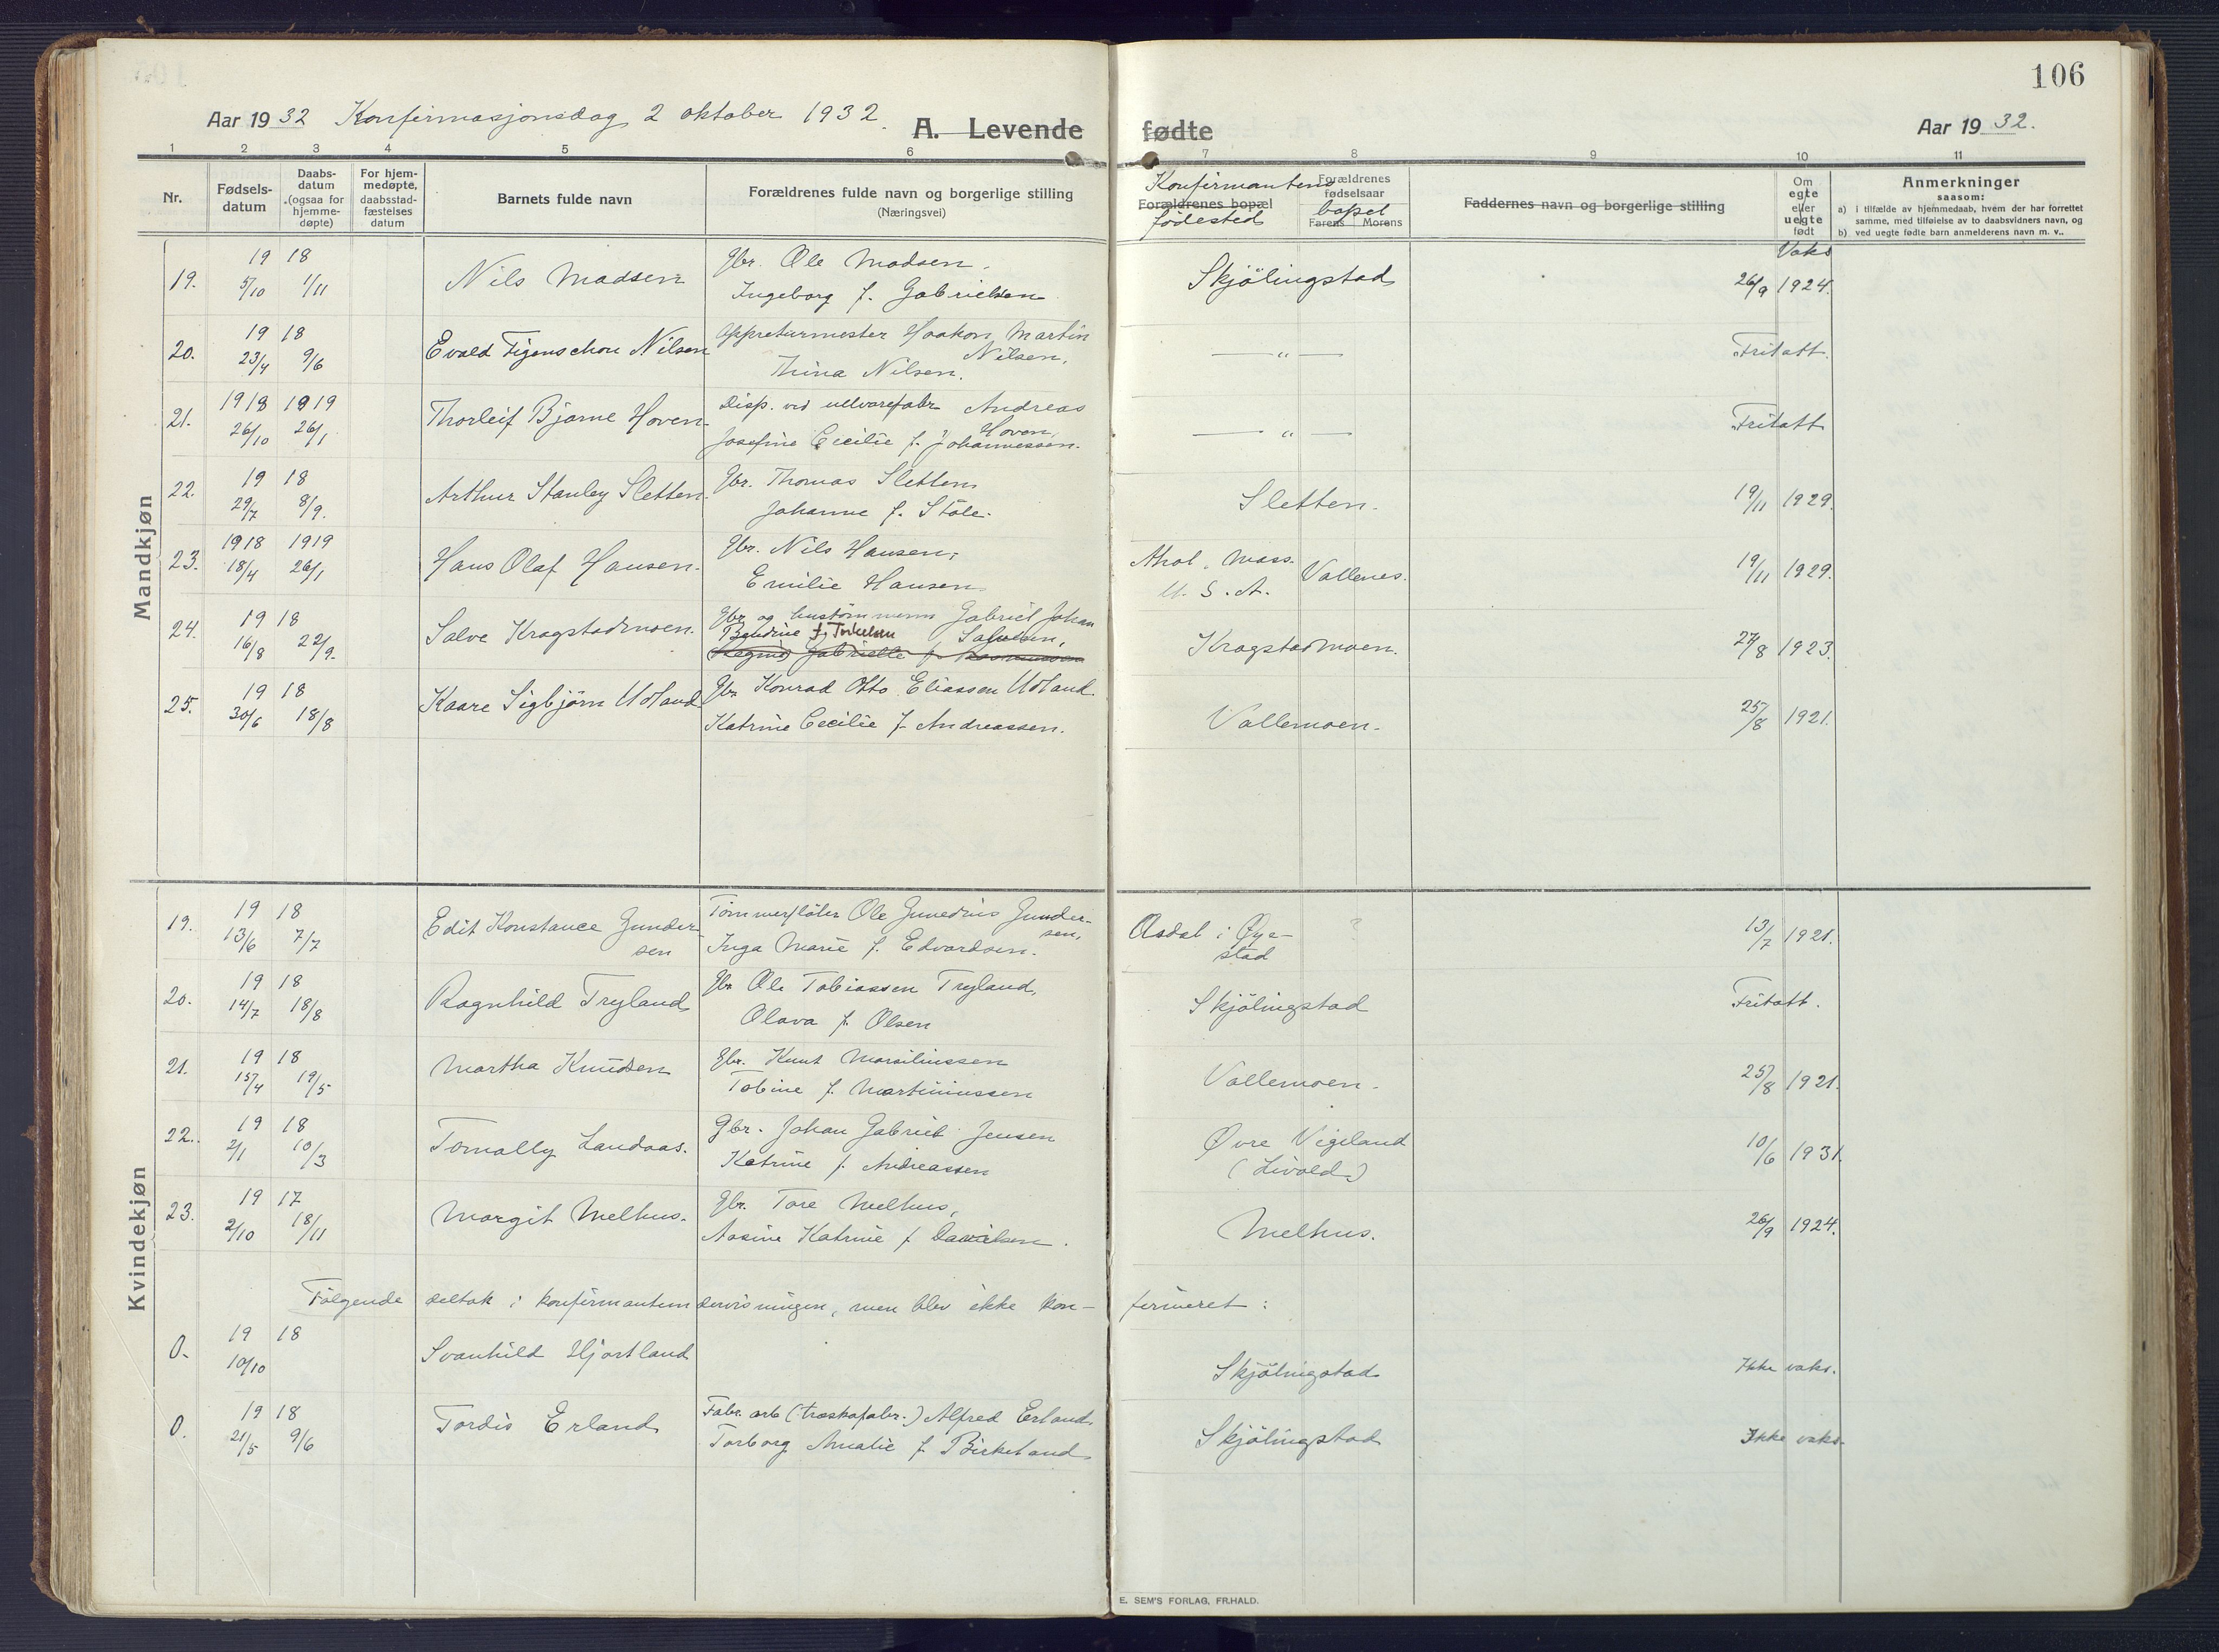 106
Aar 19 32 Konfirmasjonsdag 2 oktober 1932. A. Levende fødte Aar 19 32.
1 2 3 4 5 6 7 8 9 10 11
Nr.
Fødsels-
datum
Daabs-
datum
(ogsaa for
hjemme-
døpte)
For hjem-
medøpte,
daabsstad-
fæstelses
datum
Barnets fulde navn
Forældrenes fulde navn og borgerlige stilling
(Næringsvei)
Konfirmantens
Forældrenes bopæl
fødested
Forældrenes
fødselsaar
bopel
Farens Morens
Faddernes navn og borgerlige stilling
Om
egte
eller
uegte
født
Vaks
Anmerkninger
saasom:
a) i tilfælde av hjemmedaab, hvem der har forrettet
samme, med tilføielse av to daabsvidners navn, og
b) ved uegte fødte barn anmelderens navn m. v..
Mandkjøn
19. 19 18 5/10 1/11 Nils Madsen Gbr. Ole Madsen,
Ingeborg f. Gabrielsen Skjölingstad 26/9 1924.
20. 19 18 23/4 9/6 Evald Figenschou Nilsen Appreturmester Haakon Martin
Nilsen,
Thina Nilsen. — „ — Fritatt.
21. 1918 1919 26/10 26/1 Thorleif Bjarne Hoven Disp. ved ullvarefabr Andreas
Hoven,
Josefine Cecilie f. Johannessen. — „ — Fritatt
22. 19 18 29/7 8/9. Arthur Stanley Sletten. Gbr. Thomas Sletten
Johanne f. Ståle. Sletten. 19/11 1929.
23. 1918 1919 18/4 26/1 Hans Olaf Hansen. Gbr. Nils Hansen,
Emilie Hansen Athol, Mass.
U. S. A. Vallenes. 19/11 1929.
24. 19 18 16/8 22/9. Salve Kragstadmoen. Gbr og hustömmerm Gabriel Johan
Bendine f. Torkelsen Salvesen,
Gabrielle f. Rasmussen Kragstadmoen. 27/8 1923.
25. 19 18 30/6 18/8 Kaare Sigbjörn Udland Gbr Konrad Otto Eliassen Udland.
Katrine Cecilie f. Andreassen. Vallemoen. 25/8 1921.
Kvindekjøn
19. 19 18 13/6 7/7 Edit Konstance Gunder-
sen Tömmerfløter Ole Gunedius Gunder-
sen,
Inga Marie f. Edvardsen. Asdal i Øye-
stad ? 13/7 1921.
20. 19 18 14/7 18/8 Ragnhild Tryland Gbr Ole Tobiassen Tryland,
Olava f. Olsen Skjölingstad Fritatt.
21. 19 18 15/4 19/5 Martha Knudsen Gbr. Knut Marsiliussen
Tobine f. Martiniussen Vallemoen. 25/8 1921.
22. 19 18 2/1 10/3 Tomally Landaas. Gbr. Johan Gabriel Jensen
Katrine f. Andreassen Øvre Vigeland
(Livold) 10/6 1931.
23. 19 17 2/10 18/11 Margit Melhus. Gbr. Tore Melhus,
Aasine Katrine f. Danielsen. Melhus. 26/9 1924.
Følgende deltok i konfirmantundervisningen, men blev ikke kon- firmeret:
0. 19 18 10/10 Svanhild Hjortland Skjölingstad Ikke vaks.
0. 19 18 21/5 9/6 Tordis Erland Fabr. arb (træskofabr.) Alfred Erland,
Torborg Amalie f. Birkeland Skjölingstad Ikke vaks.
E. SEM'S FORLAG, FR.HALD.